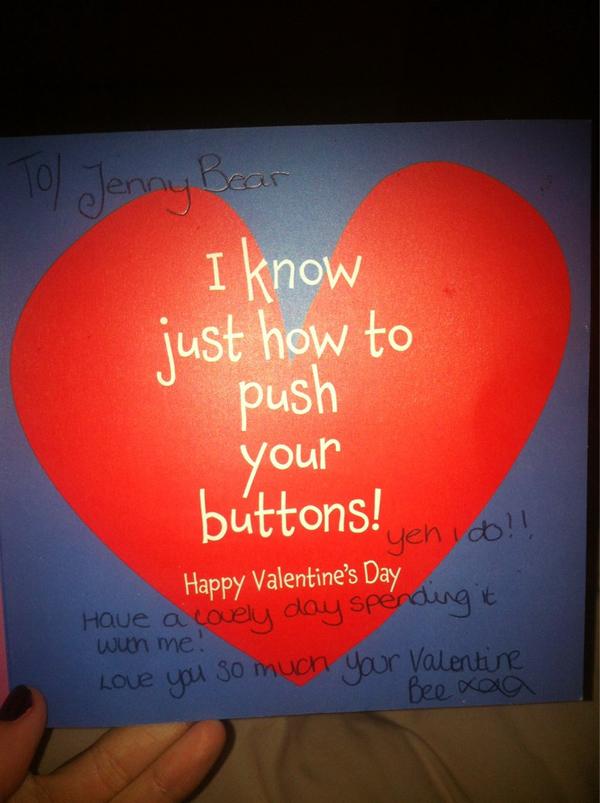 To/ Jenny Bear
I know
just how to
push
your
buttons!
yeh i do!!
Happy Valentine's Day
Have a lovely day spending it
with me!
Love you so much your Valentine
Bee